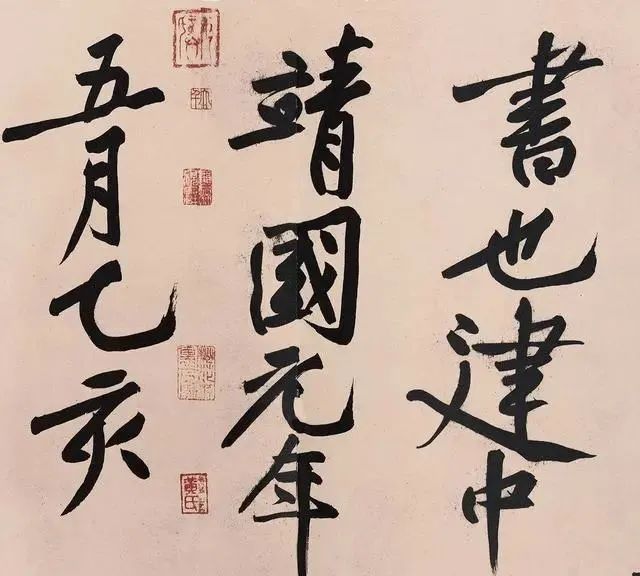 書也建中
靖國元年
五月乙亥
黃氏